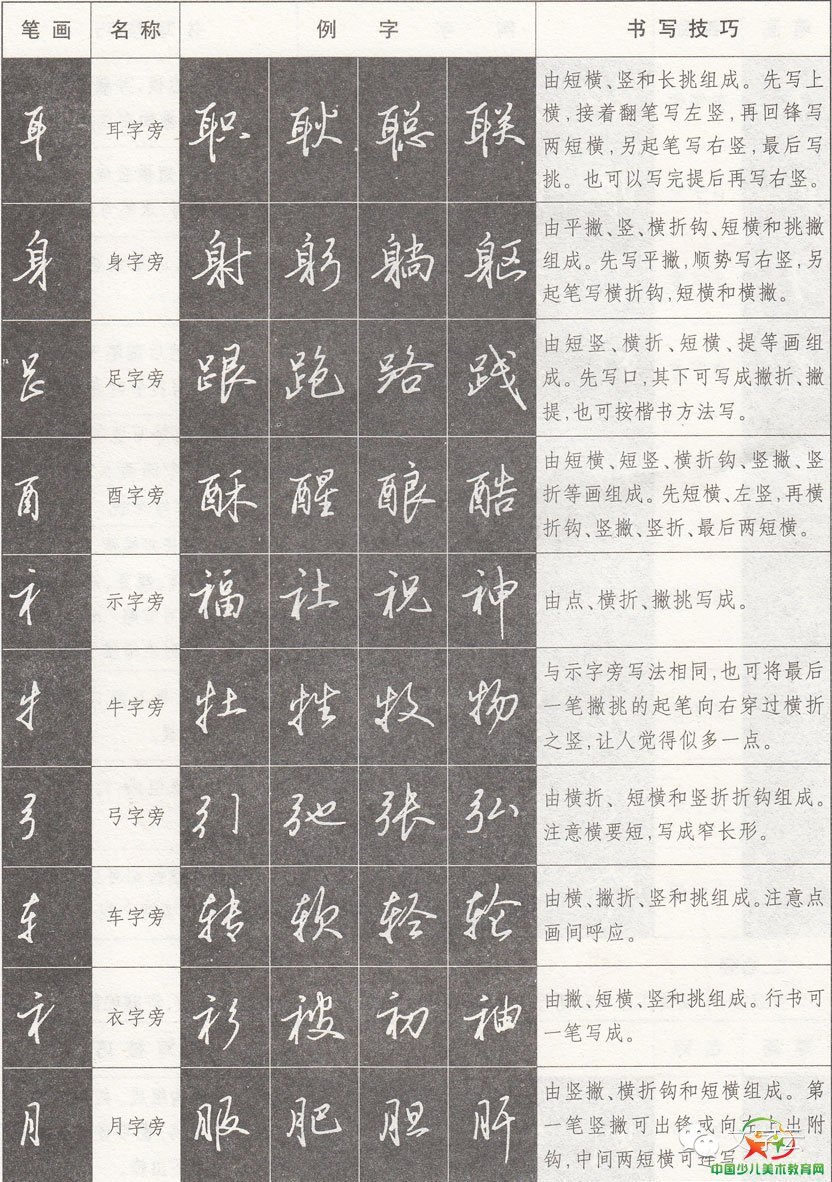 笔画 名称 例字 书写技巧
耳 耳字旁 职 耿 聪 联
由短横、竖和长挑组成。先写上
横,接着翻笔写左竖,再回锋写
两短横,另起笔写右竖,最后写
挑。也可以写完提后再写右竖。
身 身字旁 射 躬 躺 躯
由平撇、竖、横折钩、短横和挑撇
组成。先写平撇,顺势写右竖,另
起笔写横折钩,短横和横撇。
足字旁 跟 跑 路 践
由短竖、横折、短横、提等画组
成。先写口,其下可写成撇折、撇
提,也可按楷书方法写。
酉 酉字旁 酥 醒 酿 酷
由短横、短竖、横折钩、竖撇、竖
折等画组成。先短横、左竖,再横
折钩、竖撇、竖折、最后两短横。
礻 示字旁 福 社 祝 神
由点、横折、撇挑写成。
牜 牛字旁 牡 牲 牧 物
与示字旁写法相同,也可将最后
一笔撇挑的起笔向右穿过横折
之竖,让人觉得似多一点。
弓 弓字旁 引 弛 张 弘
由横折、短横和竖折折钩组成。
注意横要短,写成窄长形。
车 车字旁 转 软 轻 轮
由横、撇折、竖和挑组成。注意点
画间呼应。
衤 衣字旁 衫 被 初 袖
由撇、短横、竖和挑组成。行书可
一笔写成。
月 月字旁 服 肥 胆 肝
由竖撇、横折钩和短横组成。第
一笔竖撇可出锋或向左上出附
钩,中间两短横可连写
中国少儿美术教育网